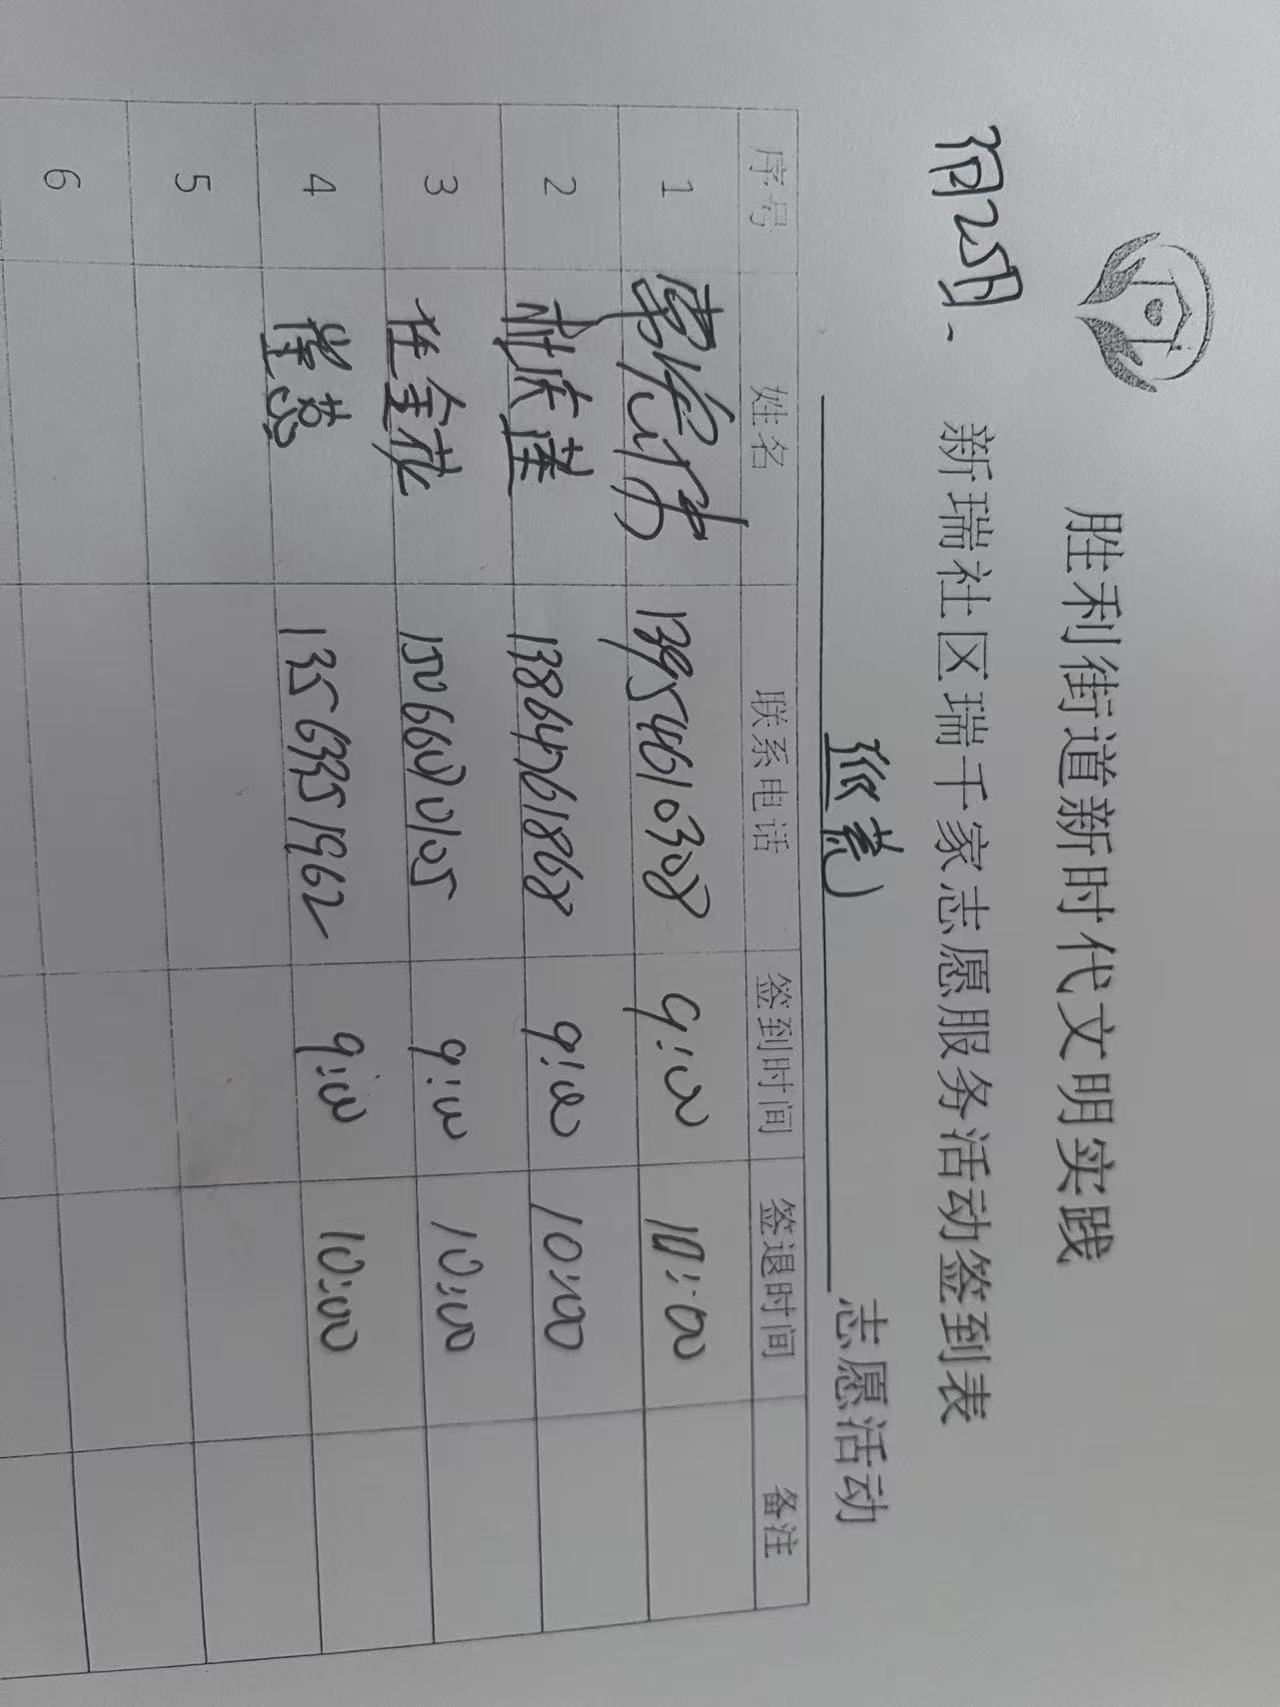 胜利街道新时代文明实践
新瑞社区瑞千家志愿服务活动签到表
志愿活动
序号 姓名 联系电话 签到时间 签退时间 备注
1 13954610308 9:00 10:00
2 13864761868 9:00 10:00
3 任金花 15066070105 9:00 10:00
4 崔慧 13563351962 9:00 10:00
5
6